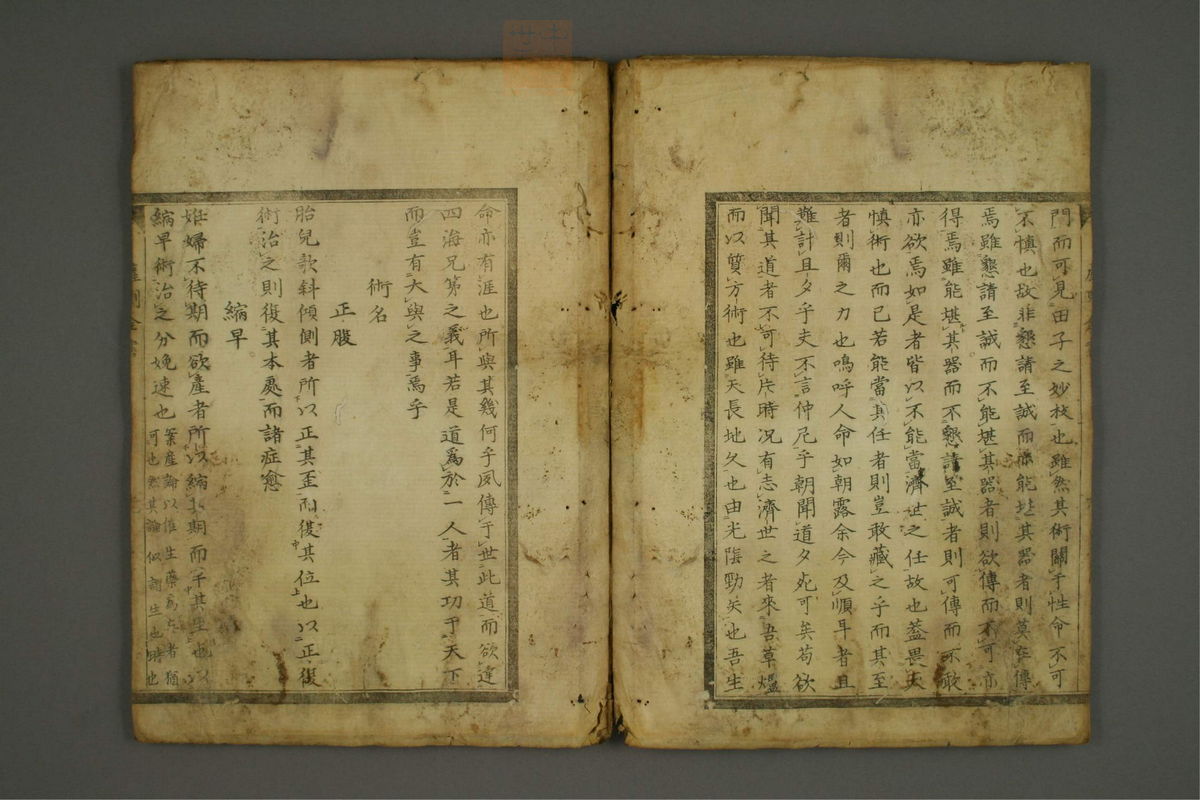 門而可見田子之妙技也雖然其術關于性命不可
不慎也故非懇請至誠而能堪其器者則莫傳
焉雖懇請至誠而不能堪其器者則欲傳而不可亦
得焉雖能堪其器而不懇請至誠者則可傳而不敢
亦欲焉如是者皆以不能當濟世之任故也蓋畏天
慎術也而已若能當其任者則豈敢藏之乎而其至
者則爾之力也嗚呼人命如朝露余今及順耳者且
難計且夕乎夫不言仲尼乎朝聞道夕死可矣苟欲
聞其道者不可待片時况有志濟世之者來吾草廬
而以質方術也雖天長地久也由光陰勁矢也吾生
命亦有涯也所與其幾何乎夙傳于世此道而欲達
四海兄弟之義耳若是道爲於一二人者其功于天下
而豈有大與之事焉乎
術名
正胺
胎兒欹斜傾側者所以正其歪而復其位也以正復
術治之則復其本處而諸症愈
縮早
妊婦不待期而欲産者所以縮其期而于其生也以
縮早術治之分娩速也
案産論以催生藥爲者猶
可也然其論似生也時也